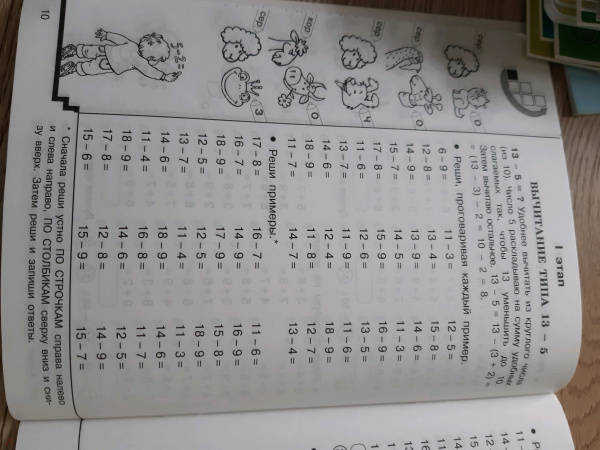 I этап
ВЫЧИТАНИЕ ТИПА 13 – 5
13 – 5 = ? Удобнее вычитать из круглого числа
(из 10). Число 5 раскладываю на сумму удобных
слагаемых так, чтобы 13 уменьшить до 10.
Затем вычитаю остальное. 13 – 5 = 13 – (3 + 2) =
= (13 – 3) – 2 = 10 – 2 = 8.
• Реши, проговаривая каждый пример.
6 – 9 = 11 – 3 = 12 – 5 =
12 – 8 = 13 – 4 = 15 – 8 =
14 – 9 = 13 – 9 = 14 – 6 =
15 – 7 = 14 – 5 = 11 – 3 =
17 – 8 = 15 – 9 = 16 – 9 =
11 – 6 = 12 – 6 = 13 – 5 =
13 – 7 = 11 – 9 = 11 – 6 =
14 – 6 = 12 – 4 = 18 – 9 =
18 – 9 = 11 – 8 = 12 – 7 =
11 – 7 = 14 – 7 = 13 – 4 =
• Реши примеры.*
17 – 8 = 16 – 7 = 11 – 6 =
16 – 7 = 14 – 9 = 16 – 9 =
18 – 9 = 17 – 9 = 15 – 8 =
12 – 5 = 12 – 9 = 18 – 9 =
13 – 7 = 11 – 4 = 11 – 3 =
14 – 6 = 18 – 9 = 14 – 6 =
11 – 4 = 16 – 8 = 11 – 7 =
18 – 9 = 14 – 6 = 12 – 5 =
17 – 8 = 12 – 8 = 14 – 9 =
15 – 6 = 15 – 9 = 15 – 7 =
* Сначала реши устно ПО СТРОЧКАМ справа налево
и слева направо, ПО СТОЛБИКАМ сверху вниз и сни-
зу вверх. Затем реши и запиши ответы.
5–2=
10